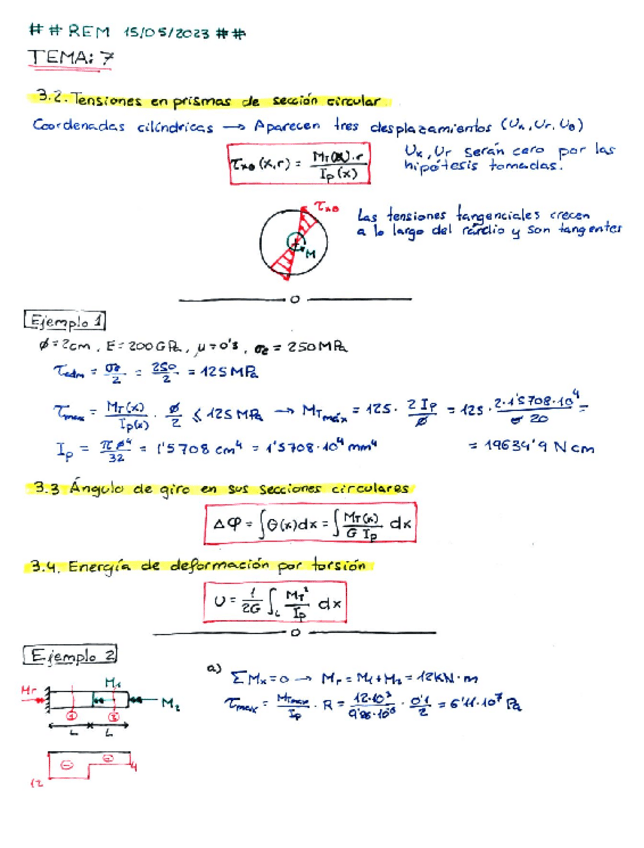 ## REM 15/05/2023 ##
TEMA: 7
3.2. Tensiones en prismas de sección circular
Coordenadas cilíndricas → Aparecen tres desplazamientos (Ux, Ur, Uθ)
τxθ (x,r) = MT(x)·r / Ip(x)
Ux, Ur serán cero por las
hipótesis tomadas.
τxθ
M
Las tensiones tangenciales crecen
a lo largo del radio y son tangentes
Ejemplo 1
ϕ = 2cm, E = 200 GPa, μ = 0'3, σe = 250 MPa
τadm = σe/2 = 250/2 = 125 MPa
τmax = MT(x)/Ip(x) · ϕ/2 ≤ 125 MPa → MTmáx = 125 · 2 Ip/ϕ = 125 · 2·1'5708·10⁴/20 =
Ip = πϕ⁴/32 = 1'5708 cm⁴ = 1'5708·10⁴ mm⁴ = 19634'9 N cm
3.3 Ángulo de giro en sus secciones circulares
Δφ = ∫θ(x)dx = ∫ MT(x)/G Ip dx
3.4. Energía de deformación por torsión
U = 1/2G ∫L MT²/Ip dx
Ejemplo 2
a) ΣMx = 0 → Mr = M1 + M2 = 12 kN·m
Mr M1 M2
τmax = MTmax/Ip · R = 12·10³/9'85·10⁻⁶ · 0'1/2 = 6'11·10⁷ Pa
L L
12 4